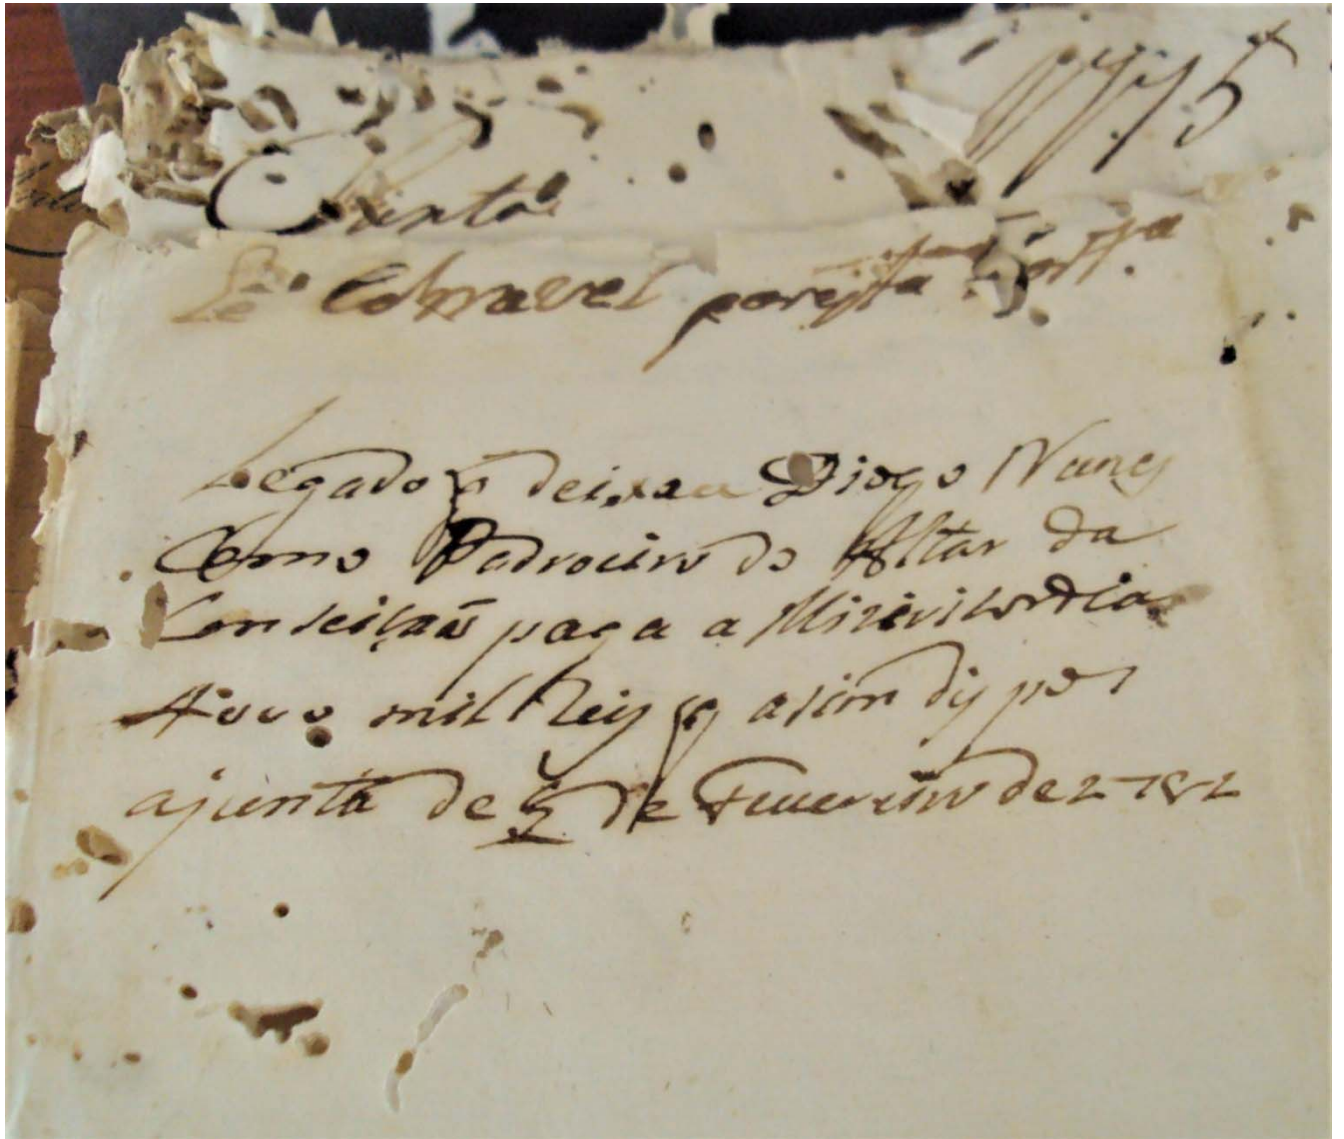 1775
Junta
He Cobravel por esta
Legado q deixou Diogo Nunes
Como Padroeiro do Altar da
Conseiçaõ paga a Mizericordia
mil Reis q asim dis por
ajunta de 2 de Feuereiro de 1782